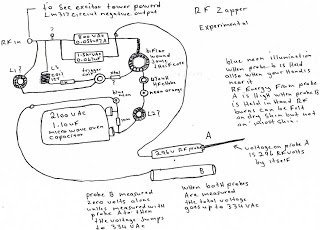 To Sec exciter tower powered
Lm317 circuit negative output
RF Zapper
Experimental
RF in
800 VAC
0.067
L1?
L3
trigger
bifilar
wound
neon orange
blue
neon
L2?
2100 VAC
1.10uF
microwave oven
capacitor
blue neon illumination
when probe B is held
also when your hand is
near it
RF Energy from probe
A is high when probe B
is held in hand RF
burns can be felt
on dry skin but not
on moist skin.
296v RF probe
A
B
voltage on probe
A is 296 RF volts
by itself
probe B measured
zero volts alone
unless measured with
probe A to then
the voltage jumps
to 334 VAC
when both probes
are measured
the total voltage
goes up to 334 VAC